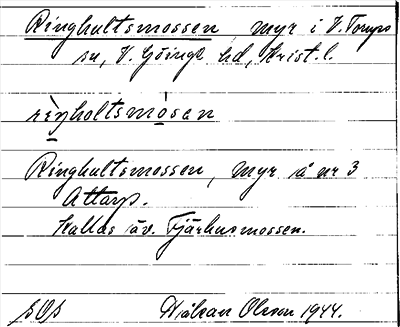 Ringhultsmossen, myr i V. Torups
sn, V. Göinge hd, Krist. l.
rìŋholtsmósan
Ringhultsmossen, myr å nr 3
Attarp.
Kallas äv. Tjärhusmossen.
Håkan Olsson 1944.